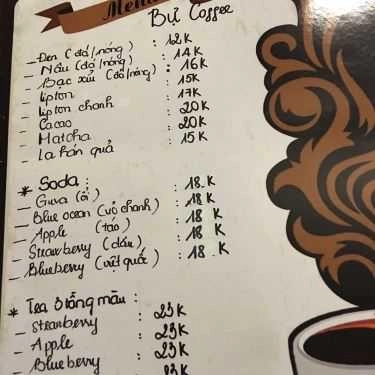 Menu
Bự Coffee
- Đen (đá/nóng) : 12K
- Nâu (đá/nóng) : 14K
- Bạc xỉu (đá/nóng) : 16K
- Lipton : 15K
- Lipton chanh : 17K
- Cacao : 20K
- Matcha : 20K
- La hán quả : 15K
* Soda :
- Guva (ổi) : 18.K
- Blue ocean (vỏ chanh) : 18.K
- Apple (táo) : 18 K
- Strawberry (dâu) : 18 K
- Blueberry (việt quất) : 18.K
* Tea 3 tầng màu :
- Strawberry : 23K
- Apple : 23K
- Blueberry : 23K
23K